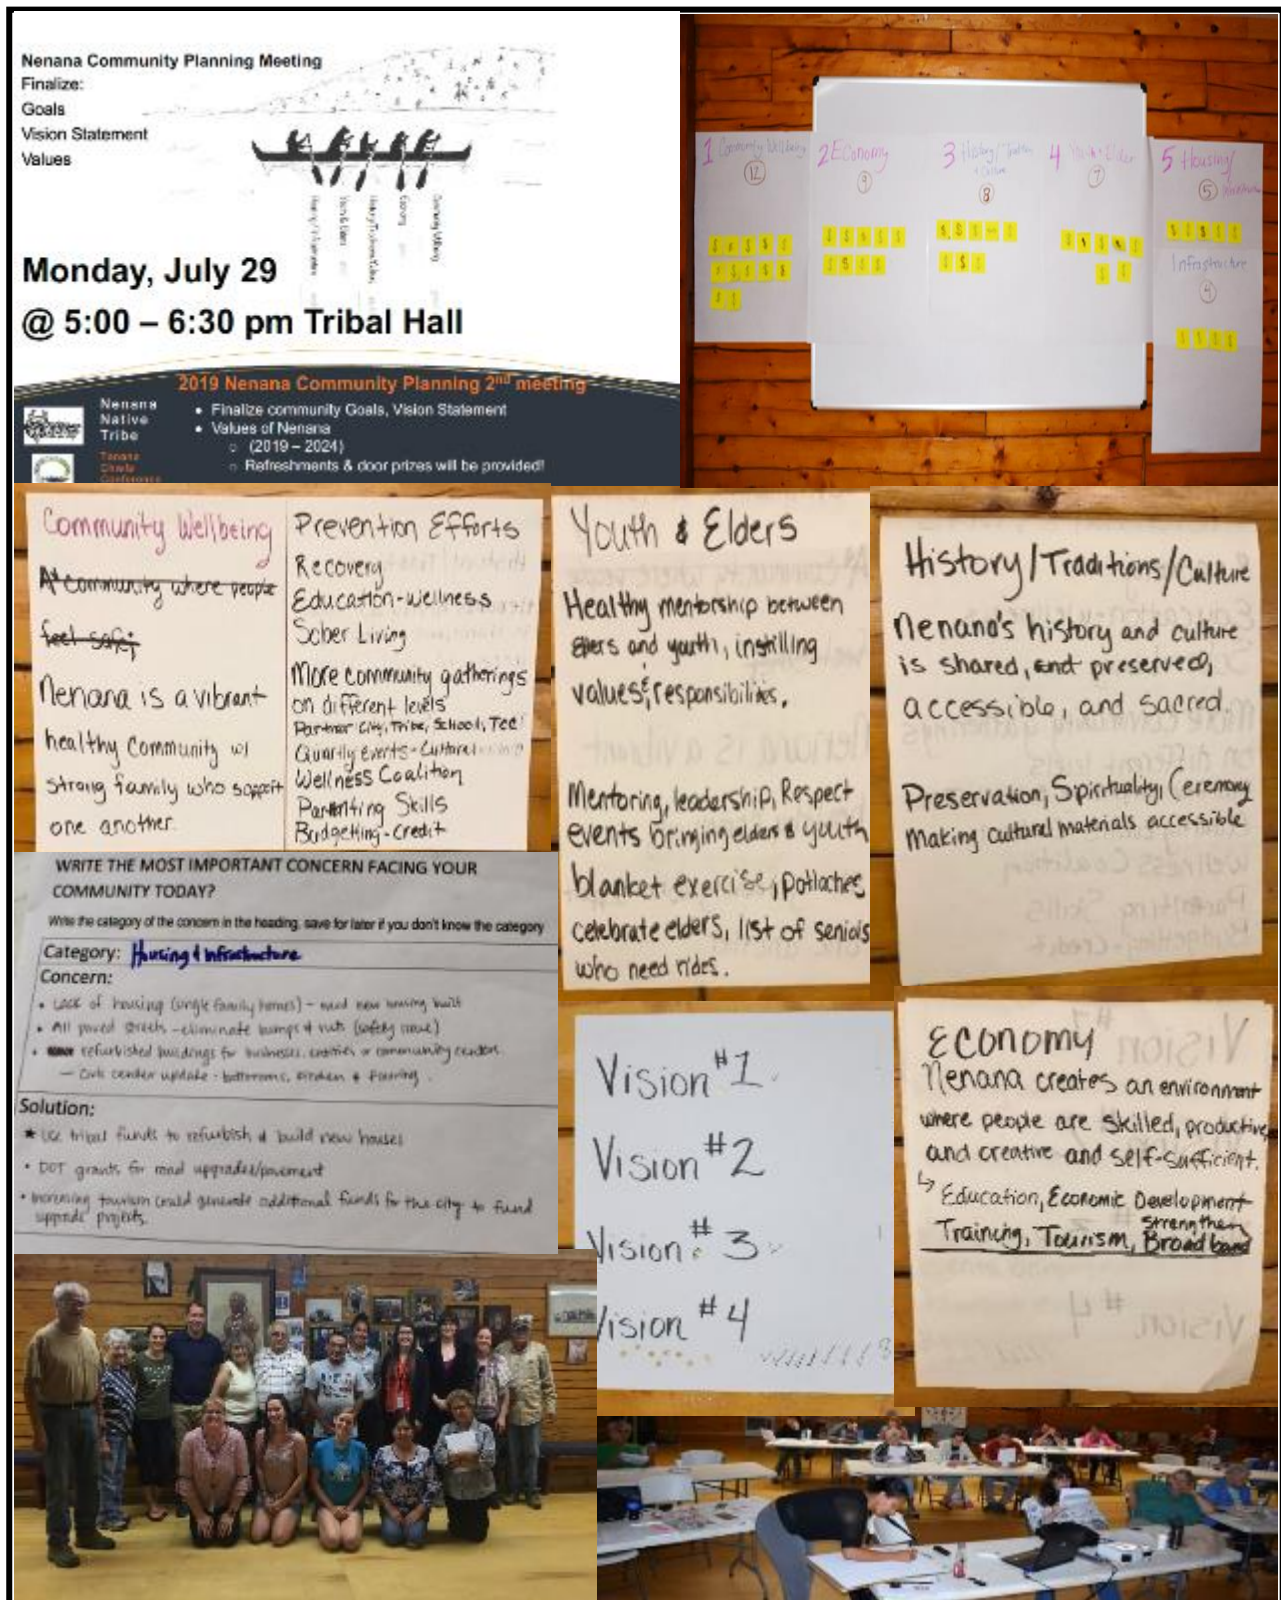 Nenana Community Planning Meeting
Finalize:
Goals
Vision Statement
Values
Monday, July 29
@ 5:00 – 6:30 pm Tribal Hall
2019 Nenana Community Planning 2nd meeting
Nenana
Native
Tribe
Tanana
Chiefs
Conference
• Finalize community Goals, Vision Statement
• Values of Nenana
○ (2019 – 2024)
○ Refreshments & door prizes will be provided!
1 Community Wellbeing
12
2 Economy
9
3 History/Tradition
+ Culture
8
4 Youth + Elder
7
5 Housing/
5
Infrastructure
4
Community Wellbeing
A community where people
feel safe;
Nenana is a vibrant
healthy community w/
strong family who support
one another.
Prevention Efforts
Recovery
Education-wellness
Sober Living
More community gatherings
on different levels
Partner City, Tribe, School, TCC
Quartly events - Cultural
Wellness Coalition
Parenting Skills
Budgetting-Credit
Youth & Elders
Healthy mentorship between
elders and youth, instilling
values & responsibilities.
Mentoring, leadership, Respect
events bringing elders & youth
blanket exercise, potlaches,
celebrate elders, list of seniors
who need rides.
History/Traditions/Culture
Nenana's history and culture
is shared, and preserved,
accessible, and sacred.
Preservation, Spirituality, Ceremony
Making cultural materials accessible
WRITE THE MOST IMPORTANT CONCERN FACING YOUR
COMMUNITY TODAY?
Write the category of the concern in the heading, save for later if you don't know the category
Category: Housing & Infrastructure
Concern:
• Lack of housing (single family homes) - need new housing built
• All paved streets - eliminate bumps & ruts (safety issue)
• refurbished buildings for businesses, entities or community centers.
— Civic center update - bathrooms, kitchen & flooring.
Solution:
★ Use tribal funds to refurbish & build new houses
• DOT grants for road upgrades/pavement
• Increasing tourism could generate additional funds for the city to fund
upgrade projects.
Vision #1
Vision #2
Vision #3
Vision #4
Economy
Nenana creates an environment
where people are skilled, productive,
and creative and self-sufficient.
↳ Education, Economic Development
Training, Tourism, strengthen Broadband